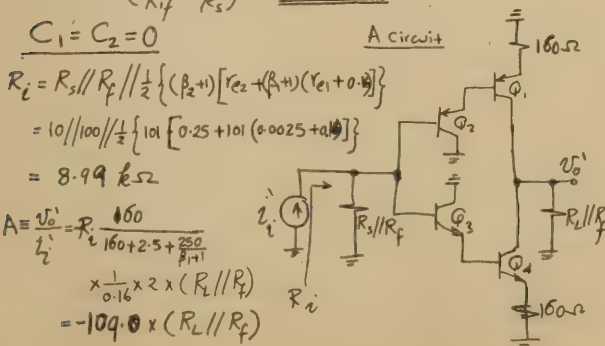 (R_if   R_s)
C₁ = C₂ = 0
A circuit
R_i = R_s//R_f//½{(β₂+1)[r_e2+(β₁+1)(r_e1+0.16)]}
= 10//100//½{101[0.25+101(0.0025+0.16)]}
= 8.99 kΩ
A ≡ v_o'/i_i' = R_i 160/(160+2.5+250/(β₁+1))
× 1/0.16 × 2 × (R_L//R_f)
= -109.0 × (R_L//R_f)
160Ω
Q₁
Q₂
v_o'
Q₃
i_i'
R_s//R_f
R_L//R_f
Q₄
R_i
160Ω